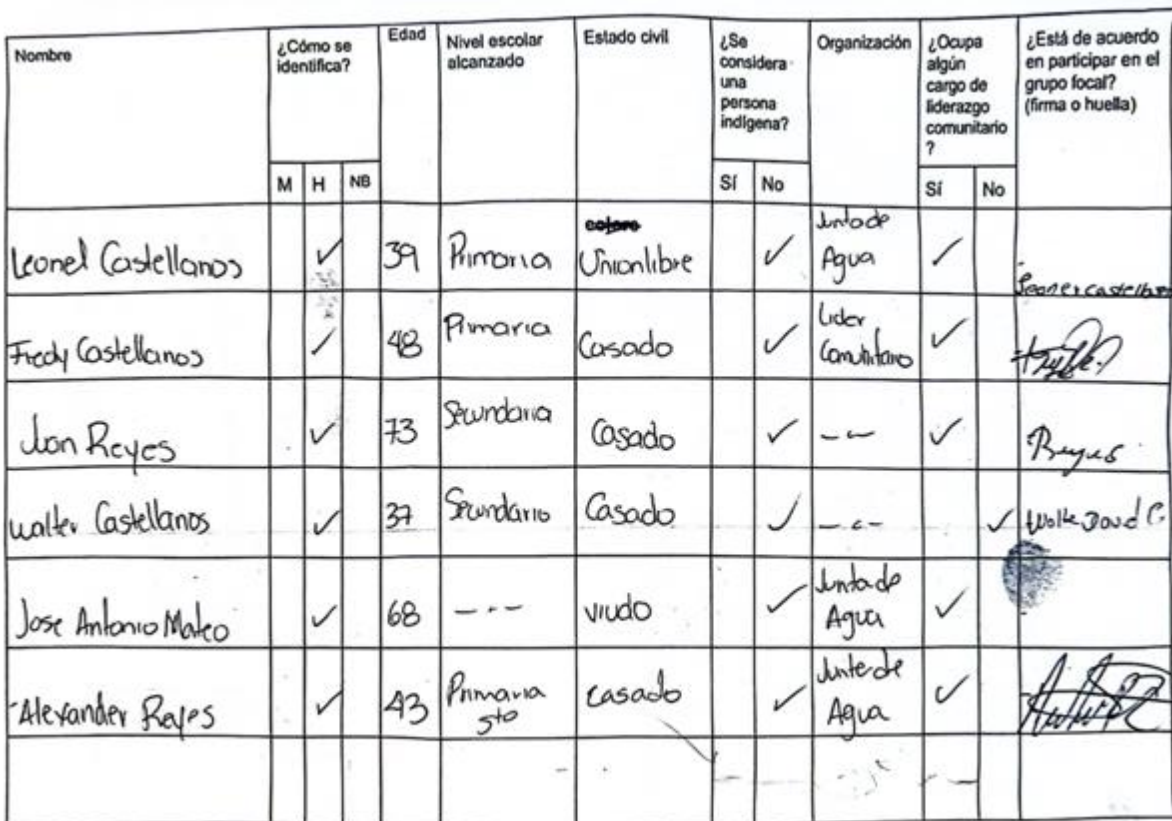 Nombre ¿Cómo se identifica? Edad Nivel escolar alcanzado Estado civil ¿Se considera una persona indígena? Organización ¿Ocupa algún cargo de liderazgo comunitario? ¿Está de acuerdo en participar en el grupo focal? (firma o huella)
M H NB Sí No Sí No
Leonel Castellanos ✓ 39 Primaria Unionlibre ✓ Junta de Agua ✓
Fredy Castellanos ✓ 48 Primaria Casado ✓ Lider Comunitario ✓
Juan Reyes ✓ 73 Secundaria Casado ✓ --- ✓ Reyes
Walter Castellanos ✓ 37 Secundario Casado ✓ --- ✓
Jose Antonio Mateo ✓ 68 --- viudo ✓ Junta de Agua ✓
Alexander Reyes ✓ 43 Primaria 5to casado ✓ Junta de Agua ✓